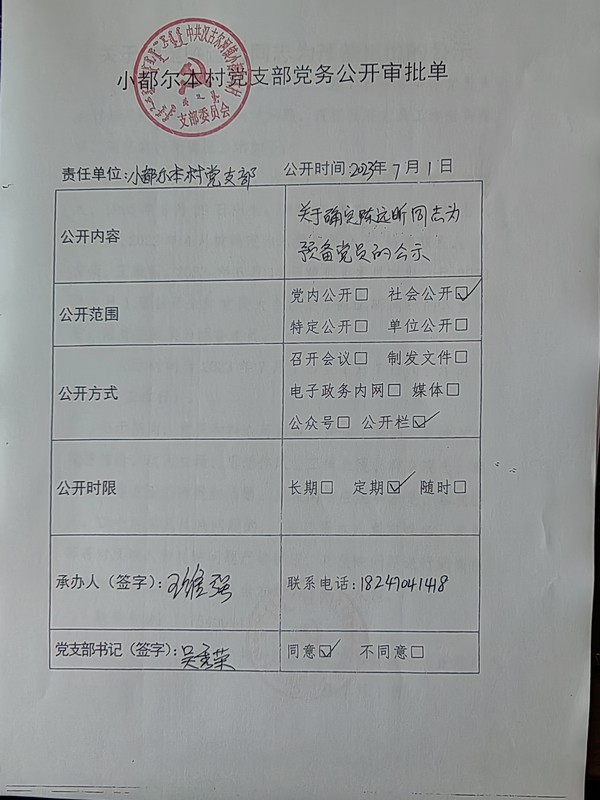 小都尔本村党支部党务公开审批单
支部委员会
责任单位:小都尔本村党支部 公开时间:2023年7月1日
公开内容
关于确定陈远昕同志为
预备党员的公示
公开范围
党内公开□ 社会公开☑
特定公开□ 单位公开□
公开方式
召开会议□ 制发文件□
电子政务内网□ 媒体□
公众号□ 公开栏☑
公开时限
长期□ 定期☑ 随时□
承办人(签字):王维强
联系电话:18247041418
党支部书记(签字):吴秀荣
同意☑ 不同意□